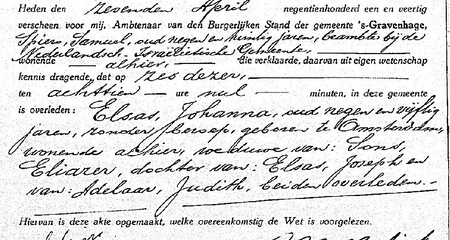 Heden den zevenden April negentienhonderd een en veertig
verscheen voor mij, Ambtenaar van den Burgerlijken Stand der gemeente 's-Gravenhage,
Spiero, Samuel, oud negen en twintig jaren, beambte bij de
Nederlandsch-Israëlietische Gemeente,
wonende alhier, die verklaarde, daarvan uit eigen wetenschap
kennis dragende, dat op zes dezer,
ten achttien ure nul minuten, in deze gemeente
is overleden: Elsas, Johanna, oud negen en vijftig
jaren, zonder beroep, geboren te Amsterdam,
wonende alhier, weduwe van: Sons,
Eliazer, dochter van: Elsas, Joseph en
van: Adelaar, Judith, beiden overleden.
Hiervan is deze akte opgemaakt, welke overeenkomstig de Wet is voorgelezen.